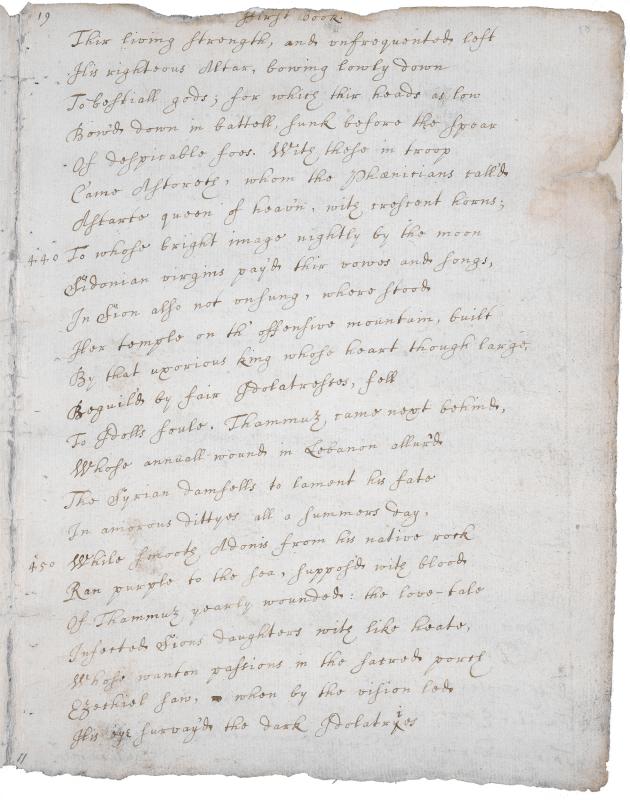 19 First Book.
Thir living strength, and unfrequented left
His righteous Altar, bowing lowly down
To bestiall gods; for which thir heads as low
Bow'd down in battell, sunk before the spear
Of despicable foes. With these in troop
Came Astoreth, whom the Phœnicians call'd
Astarte queen of heav'n, with crescent horns;
440 To whose bright image nightly by the moon
Sidonian virgins pay'd thir vowes and songs,
In Sion also not unsung, where stood
Her temple on th' offensive mountain, built
By that uxorious king whose heart though large,
Beguil'd by fair Idolatresses, fell
To Idolls foule. Thammuz came next behind,
Whose annuall wound in Lebanon allur'd
The Syrian damsells to lament his fate
In amorous dittyes all a summers day,
450 While smooth Adonis from his native rock
Ran purple to the sea, suppos'd with blood
Of Thammuz yearly wounded: the love-tale
Infected Sions daughters with like heate,
Whose wanton passions in the sacred porch
Ezekiel saw, when by the vision led
His eye survay'd the dark Idolatries
11